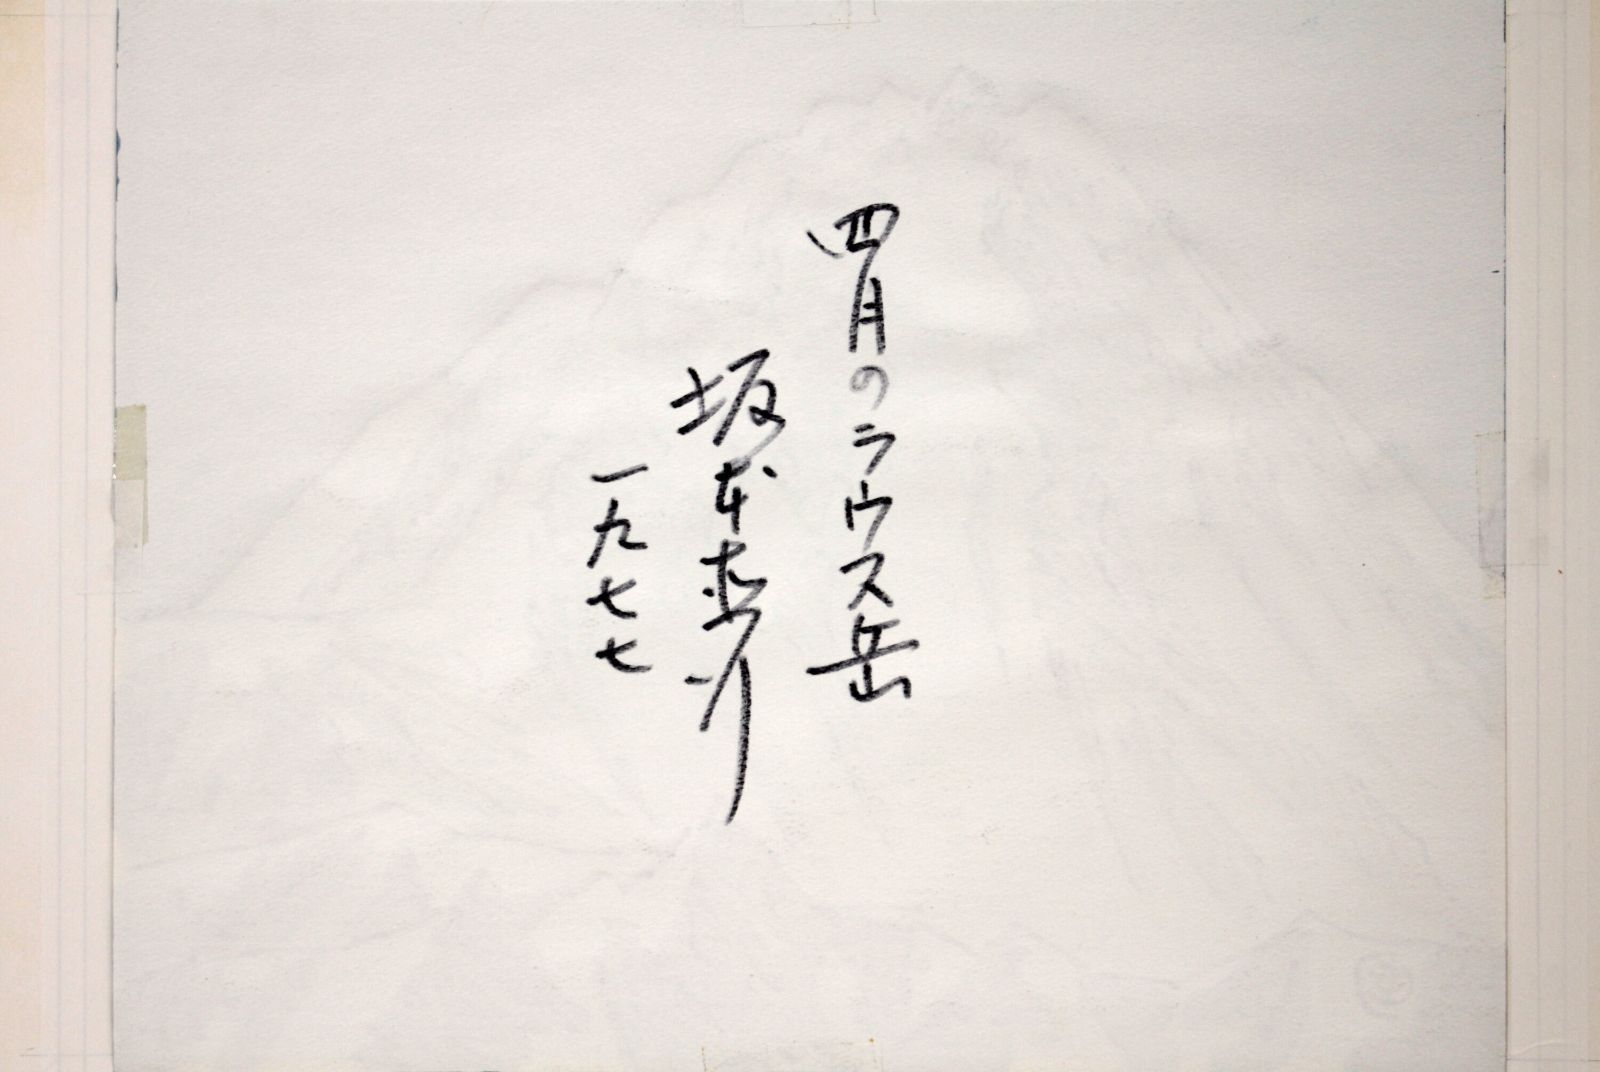 四月のラウス岳
坂本直行
一九七七